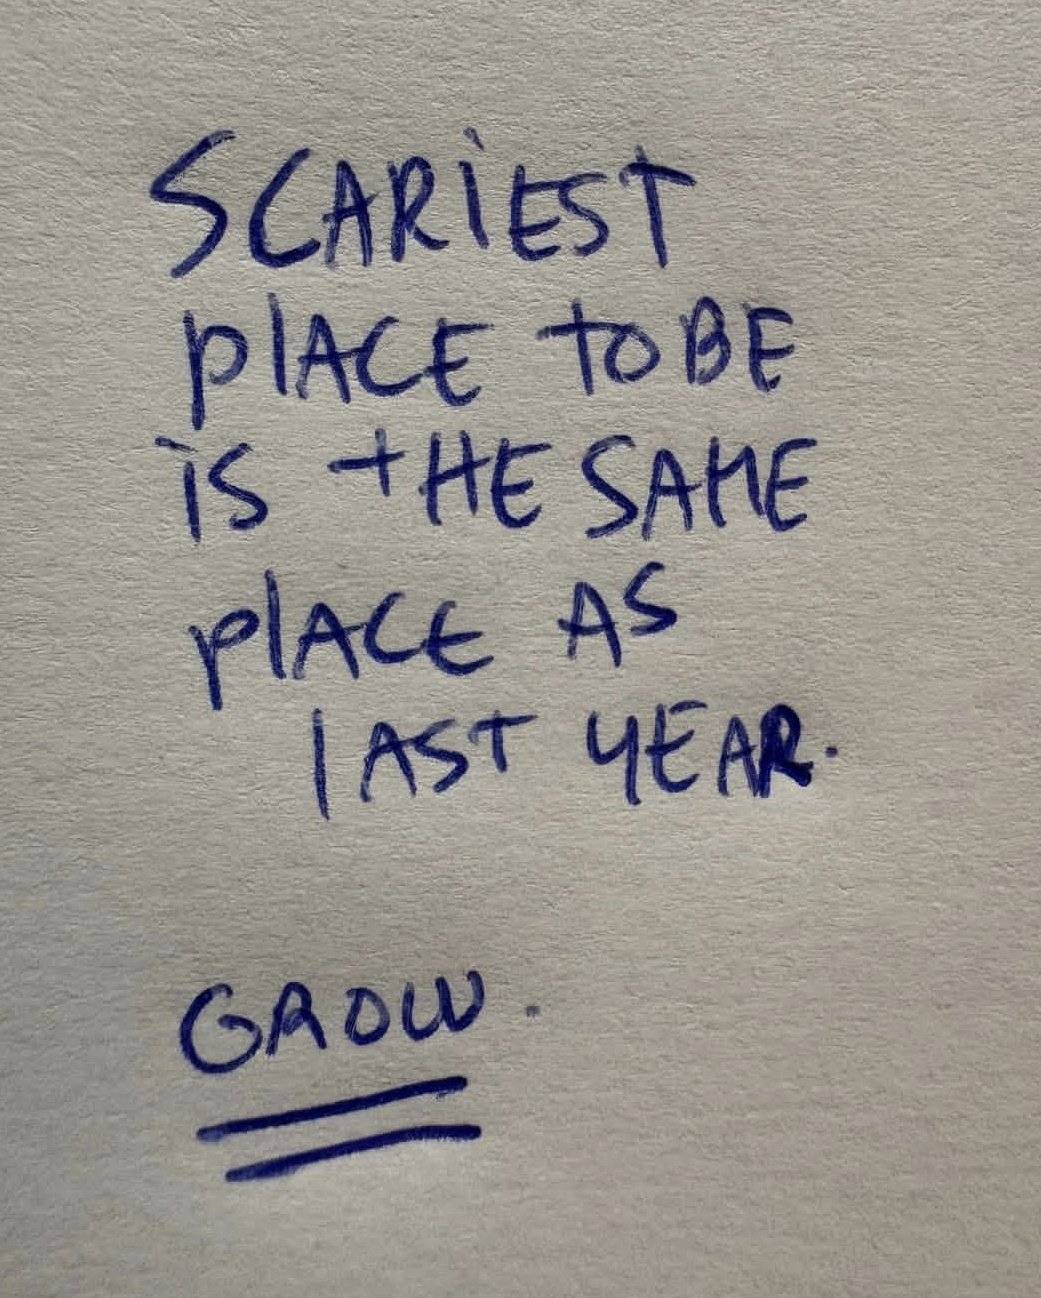 SCARiEST
PlACE TO BE
iS THE SAME
PlACE AS
lAST YEAR.
GROW.